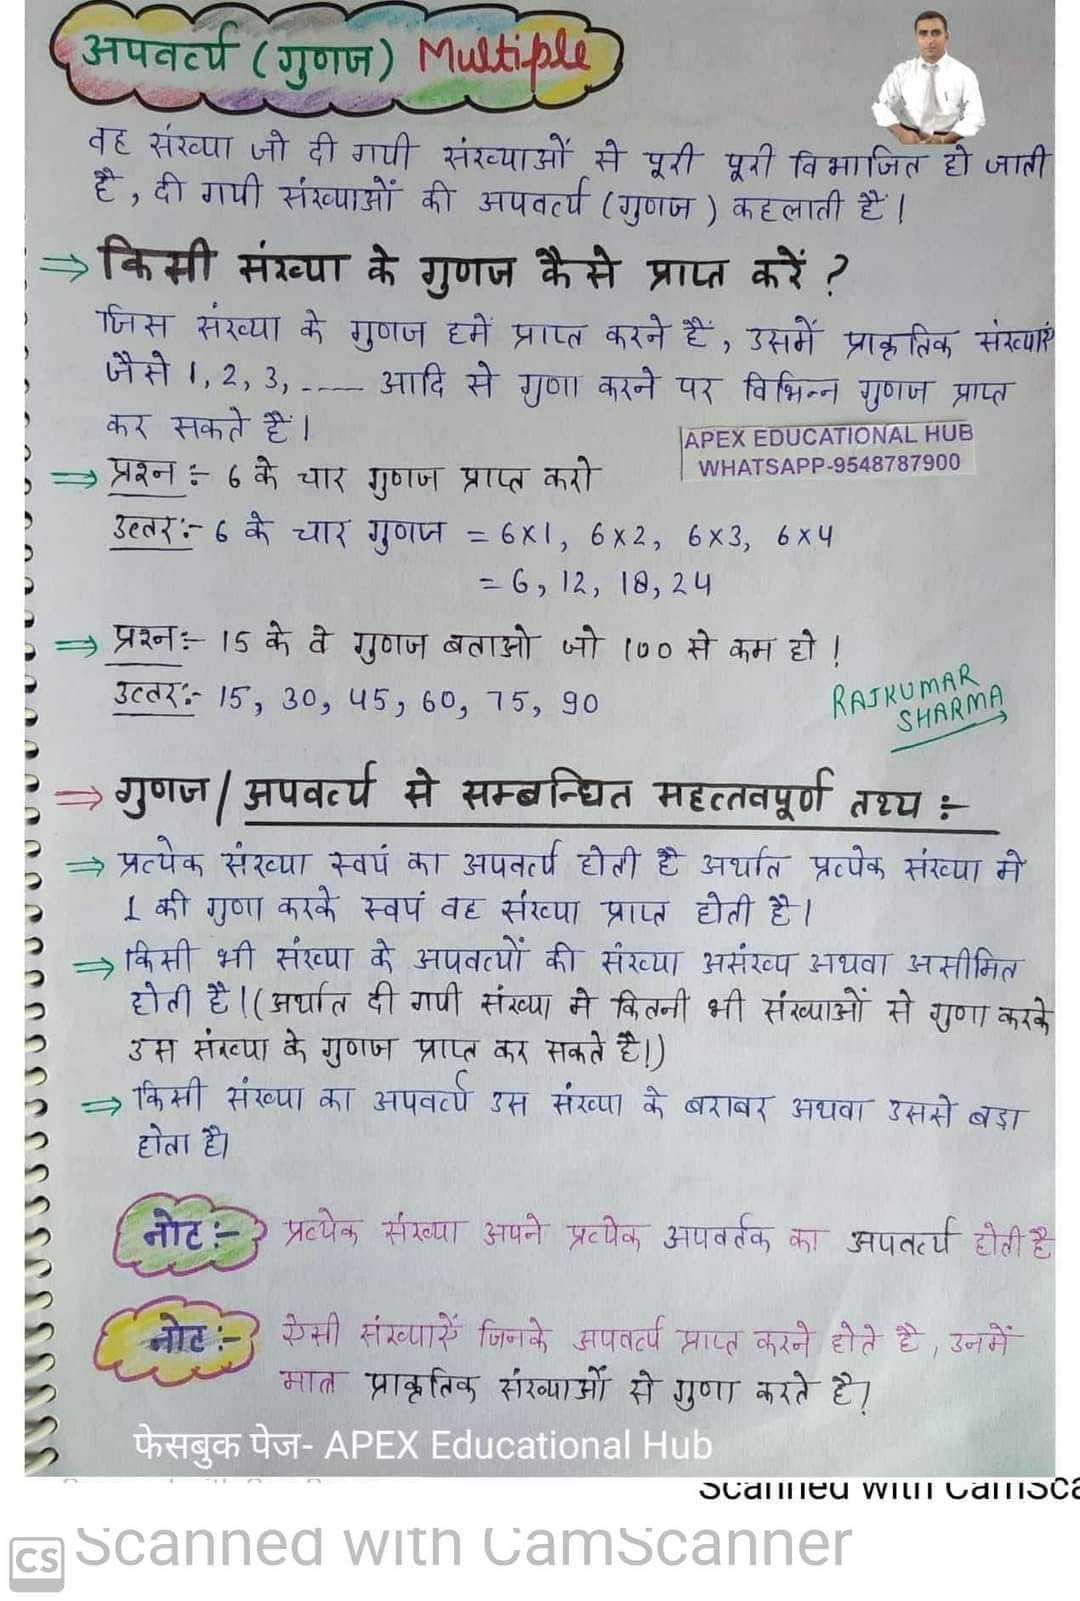 अपवर्त्य (गुणज) Multiple
वह संख्या जो दी गयी संख्याओं से पूरी पूरी विभाजित हो जाती
है, दी गयी संख्याओं की अपवर्त्य (गुणज) कहलाती है।
⇒ किसी संख्या के गुणज कैसे प्राप्त करें ?
जिस संख्या के गुणज हमें प्राप्त करने हैं, उसमें प्राकृतिक संख्याएं
जैसे 1, 2, 3, ---- आदि से गुणा करने पर विभिन्न गुणज प्राप्त
कर सकते हैं।
APEX EDUCATIONAL HUB
WHATSAPP-9548787900
⇒ प्रश्न :- 6 के चार गुणज प्राप्त करो
उत्तर :- 6 के चार गुणज = 6×1, 6×2, 6×3, 6×4
= 6, 12, 18, 24
⇒ प्रश्न :- 15 के वे गुणज बताओ जो 100 से कम हो !
उत्तर :- 15, 30, 45, 60, 75, 90
RAJKUMAR
SHARMA
⇒ गुणज / अपवर्त्य से सम्बन्धित महत्त्वपूर्ण तथ्य :-
⇒ प्रत्येक संख्या स्वयं का अपवर्त्य होती है अर्थात प्रत्येक संख्या में
1 की गुणा करके स्वयं वह संख्या प्राप्त होती है।
⇒ किसी भी संख्या के अपवर्त्यों की संख्या असंख्य अथवा असीमित
होती है।(अर्थात दी गयी संख्या में कितनी भी संख्याओं से गुणा करके
उस संख्या के गुणज प्राप्त कर सकते है।)
⇒ किसी संख्या का अपवर्त्य उस संख्या के बराबर अथवा उससे बड़ा
होता है।
नोट :- प्रत्येक संख्या अपने प्रत्येक अपवर्तक का अपवर्त्य होती है
नोट :- ऐसी संख्याऐं जिनके अपवर्त्य प्राप्त करने होते है, उनमें
मात्र प्राकृतिक संख्याओं से गुणा करते है।
फेसबुक पेज- APEX Educational Hub
Scanned with CamSca
CS Scanned with CamScanner